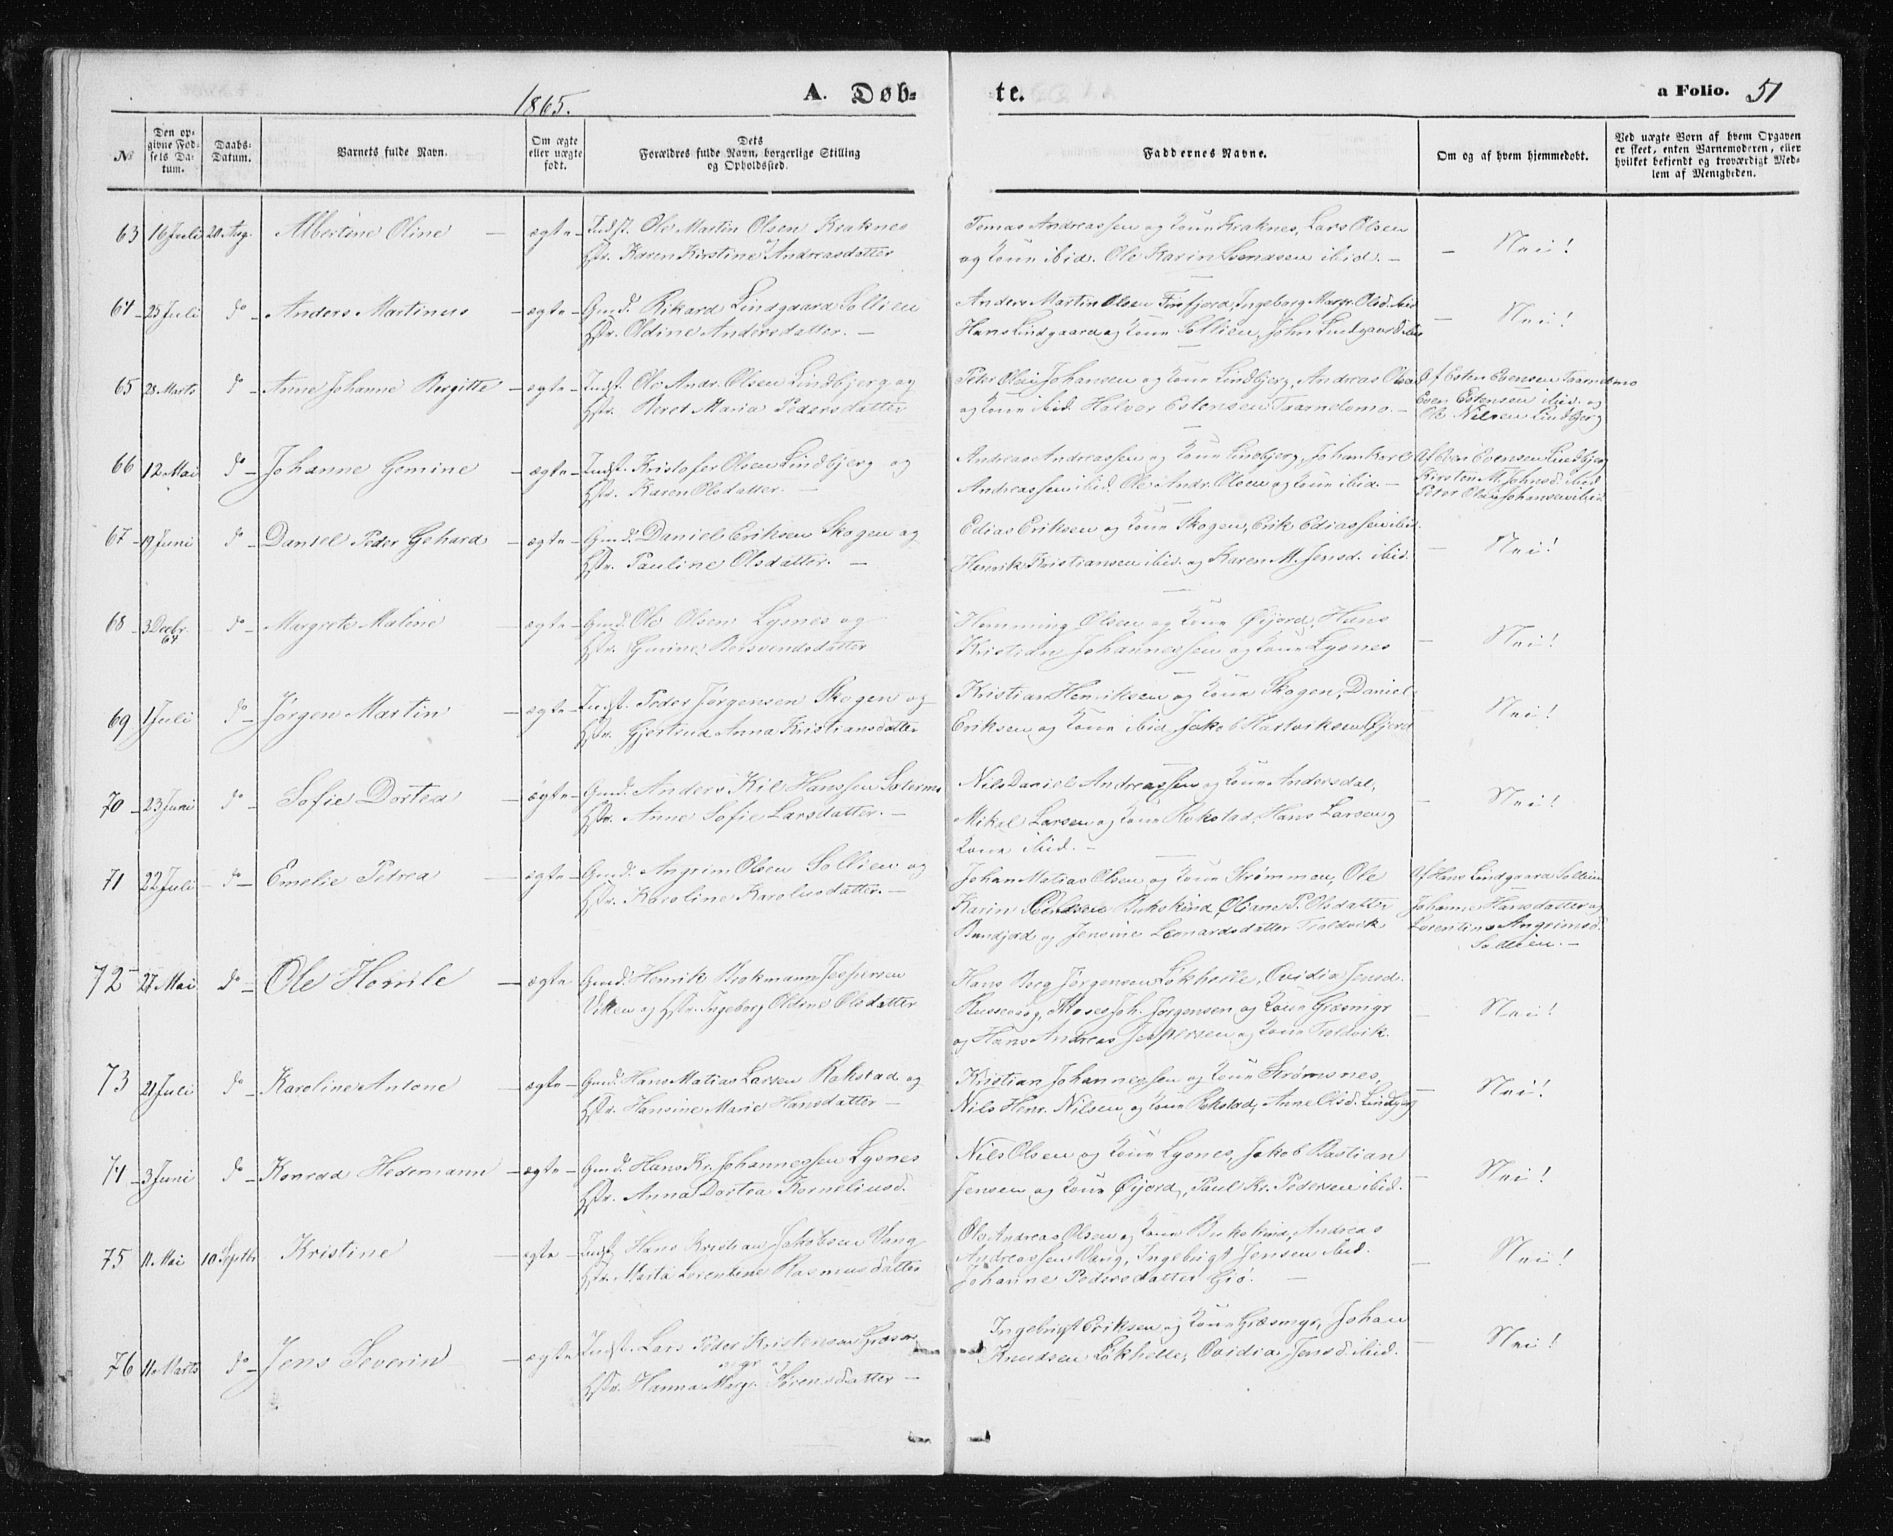 1865.
A. Døb-
te.
a Folio. 51
№
Den op-
givne Fød-
sels Da-
tum.
Daabs-
Datum.
Barnets fulde Navn.
Om ægte
eller uægte
født.
Dets
Forældres fulde Navn, borgerlige Stilling
og Opholdssted.
Faddernes Navne.
Om og af hvem hjemmedøbt.
Ved uægte Born af hvem Opgaven
er skeet, enten Barnemoderen, eller
hvilket bekjendt og troværdigt Med-
lem af Menigheden.
63 16 Juli 20 Aug. Albertine Oline – ægte – Indst. Ole Martin Olsen Kraknes
Hstr. Karen Kirstine Andreasdatter
Tomas Andreassen og Kone Kraknes, Lars Olsen
og Kone ibid. Ole Karin Svendsen ibid. –
– Nei!
64 25 Juli do – Anders Martinus – ægte – Gmd. Rikard Lindgaard Sollien
Hstr. Oldine Andersdatter. –
Anders Martin Olsen Finfjord, Ingeborg Margr. Olsd. ibid
Hans Lindgaard og Kone Sollien, John Lindgaard ibid
– Nei!
65 28 Marts do – Anne Johanne Bergitte – ægte – Indst. Ole Andr. Olsen Lindbjerg og
Hstr. Beret Maria Pedersdatter
Peter Olai Johansen og Kone Lindbjerg, Andreas Olsen
og Kone ibid. Halvor Estensen Trameldmo. –
Af Esten Evensen
Even Estensen ibid. og
Ole Nilsen Lindbjerg
66 12 Mai do – Johanne Gemine – ægte – Indst. Kristofer Olsen Lindbjerg og
Hstr. Karen Olsdatter.
Andreas Andreassen og Kone Lindbjerg, Johan Korel
Andreassen ibid. Ole Andr. Olsen og Kone ibid. –
Af Even Evensen Lindbjerg
Kirsten M. Johnsd. ibid
Peter Olai Johansen ibid.
67 19 Juni do – Daniel Peder Gehard – ægte – Gmd. Daniel Eriksen Skogen og
Hstr. Pauline Olsdatter. –
Edias Eriksen og Kone Skogen, Erik Ediassen ibid.
Henrik Kristiansen ibid. og Karen M. Jensd. ibid.
– Nei!
68 3 Decbr. 64 do – Margrete Maline – ægte – Gmd. Ole Olsen Lysnes og
Hstr. Gurine Bersvendsdatter
Hemming Olsen og Kone Øijord, Hans
Kristian Johannessen og Kone Lysnes
– Nei!
69 1 Juli do – Jørgen Martin – ægte – Indst. Peder Jørgensen Skogen og
Hstr. Gjertrud Anna Kristiansdatter
Kristian Henriksen og Kone Skogen, Daniel
Eriksen og Kone ibid, Jakob Hartviksen Øijord
– Nei!
70 – 23 Juni do – Sofie Dortea – ægte – Gmd. Anders Kil Hanssen
Hstr. Anne Sofie Larsdatter. –
Nils Daniel Andreassen og Kone Andersdal,
Mikal Larsen og Kone Rokstad, Hans Larsen og
Kone ibid. –
– Nei!
71 22 Juli – do – Emelie Petrea – ægte – Gmd. Angrim Olsen Sollien og
Hstr. Karoline Karolusdatter. –
Johan Matias Olsen og Kone Strømmen, Ole
Karin Svendsen Bukskind, Oliane P. Olsdatter
Bundjord og Jensine Leonardsdatter Troldvik
Af Hans Lindgaard Sollien
Johanne Hansdatter og
Lorentine Angrimsd.
Sollien. –
72 27 Mai do – Ole Hornle – ægte Gmd. Henrik Brokmann Jespersen
Vikken og Hstr. Ingeborg Oldine Olsdatter
Hans Berg Jørgensen Løkhelle, Ovidia Jensd.
Russevog, Moses Joh. Jørgensen og Kone Græsmyr
og Hans Andreas Jespersen og Kone Troldvik.
– Nei!
73 21 Juli do – Karoline Antone – ægte – Gmd. Hans Matias Larsen Rokstad og
Hstr. Hansine Marie Hansdatter –
Kristian Johannessen og Kone Strømsnes,
Nils Henr. Nilsen og Kone Rokstad, Anne Olsd. Lindbjerg
– Nei!
74 – 3 Juni do – Konrad Hedemann – ægte – Gmd. Hans Kr. Johannessen Lysnes
Hstr. Anna Dortea Korneliusd.
Nils Olsen og Kone Lysnes, Jakob Bastian
Jensen og Kone Øijord, Paul Kr. Pedersen ibid.
– Nei!
75 11 Mai 10 Septbr. Kristine – ægte – Indst. Hans Kristian Jakobsen Vang
Hstr. Marta Lorentine Rasmusdatter
Ole Andreas Olsen og Kone Bukskind, Andreas
Andreassen Vang, Ingebrigt Jensen ibid.
Johanne Pedersdatter Giø. –
– Nei!
76 11 Marts do – Jens Severin – ægte Indst. Lars Peder Kristensen Græs-
myr og
Hstr. Hanna Margr. Sørensdatter –
Ingebrigt Eriksen og Kone Græsmyr, Johan
Knudsen Løkhelle, Ovidia Jensd. ibid.
– Nei!